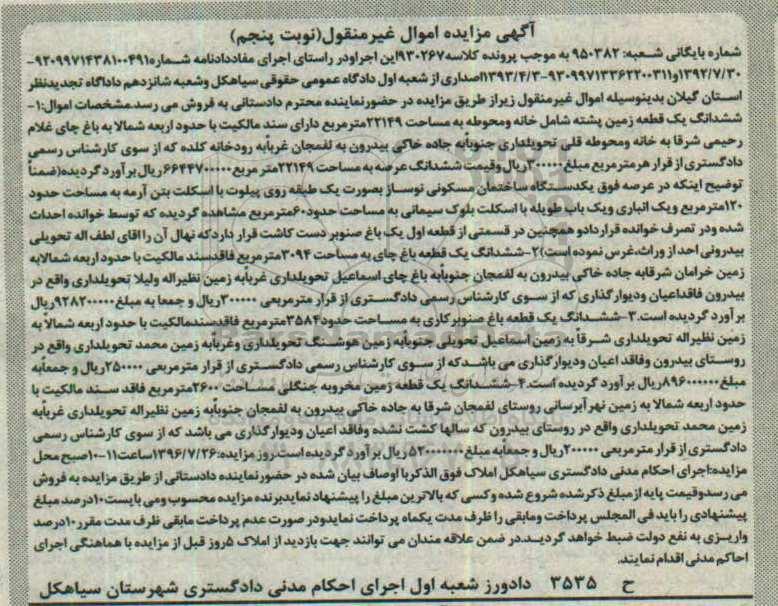 آگهی مزایده اموال غیرمنقول(نوبت پنجم)
شماره بایگانی شعبه: ۹۵۰۳۸۲ به موجب پرونده کلاسه۹۳۰۲۶۷این اجراودر راستای اجرای مفاددادنامه شماره۹۲۰۹۹۷۱۴۳۸۱۰۰۴۹۱-
۱۳۹۲/۷/۳۰و۹۳۰۹۹۷۱۳۳۶۲۲۰۰۳۱۱-۱۳۹۳/۴/۳اصداری از شعبه اول دادگاه عمومی حقوقی سیاهکل وشعبه شانزدهم داداگاه تجدیدنظر
استان گیلان بدینوسیله اموال غیرمنقول زیراز طریق مزایده در حضورنماینده محترم دادستانی به فروش می رسد.مشخصات اموال:۱-
ششدانگ یک قطعه زمین پشته شامل خانه ومحوطه به مساحت ۲۲۱۴۹مترمربع دارای سند مالکیت با حدود اربعه شمالا به باغ چای غلام
رحیمی شرقا به خانه ومحوطه قلی تحویلداری جنوباًبه جاده خاکی بیدرون به لفمجان غرباًبه رودخانه کلده که از سوی کارشناس رسمی
دادگستری از قرار هرمترمربع مبلغ۳۰۰۰۰ریال‌وقیمت ششدانگ عرصه به مساحت ۲۲۱۴۹متر مربع ۶۶۴۴۷۰۰۰۰ریال بر آورد گردیده(ضمناً
توضیح اینکه در عرصه فوق یکدستگاه ساختمان مسکونی نوساز بصورت یک طبقه روی پیلوت با اسکلت بتن آرمه به مساحت حدود
۱۲۰مترمربع ویک انباری ویک باب طویله با اسکلت بلوک سیمانی به مساحت حدود۶۰مترمربع مشاهده گردیده که توسط خوانده احداث
شده ودر تصرف خوانده قراردادو همچنین در قسمتی از قطعه اول یک باغ صنوبر دست کاشت قرار داردکه نهال آن را اقای لطف اله تحویلی
بیدرونی احد از وراث،غرس نموده است)۲-ششدانگ یک قطعه باغ چای به مساحت ۳۰۹۴مترمربع فاقدسند مالکیت با حدود اربعه شمالابه
زمین خرامان شرقابه جاده خاکی بیدرون به لفمجان جنوباًبه باغ چای اسماعیل تحویلداری غرباًبه زمین نظیراله ولیلا تحویلداری واقع در
بیدرون فاقداعیان ودیوارگذاری که از سوی کارشناس رسمی دادگستری از قرار مترمربعی ۳۰۰۰۰ریال و جمعا به مبلغ۹۲۸۲۰۰۰۰ریال
بر آورد گردیده است.۳-ششدانگ یک قطعه باغ صنوبرکاری به مساحت حدود۳۵۸۴مترمربع فاقدسندمالکیت با حدود اربعه شمالاً به
زمین نظیراله تحویلداری شرقاً به زمین اسماعیل تحویلی جنوباًبه زمین هوشنگ تحویلداری وغرباًبه زمین محمد تحویلداری واقع در
روستای بیدرون وفاقد اعیان ودیوارگذاری می باشدکه از سوی کارشناس رسمی دادگستری از قرار مترمربعی ۲۵۰۰۰۰ریال و جمعابه
مبلغ۸۹۶۰۰۰۰۰۰ریال بر آورد گردیده است.۴-ششدانگ یک قطعه زمین مخروبه جنگلی مساحت ۲۶۰۰مترمربع فاقد سند مالکیت با
حدود اربعه شمالا به زمین نهر آبرسانی روستای لفمجان شرقا به جاده خاکی بیدرون به لفمجان جنوباًبه زمین نظیراله تحویلداری غرباًبه
زمین محمد تحویلداری واقع در روستای بیدرون که سالها کشت نشده وفاقد اعیان ودیوارگذاری می باشد که از سوی کارشناس رسمی
دادگستری از قرار مترمربعی ۲۰۰۰۰۰ریال و جمعابه مبلغ۵۲۰۰۰۰۰۰۰ ریال بر آورد گردیده است.روز مزایده:۱۳۹۶/۷/۲۶ساعت۱۱-۱۰صبح محل
مزایده:اجرای احکام مدنی دادگستری سیاهکل املاک فوق الذکربا اوصاف بیان شده در حضورنماینده دادستانی از طریق مزایده به فروش
می رسدوقیمت پایه ازمبلغ ذکرشده شروع شده وکسی که بالاترین مبلغ را پیشنهاد نمایدبرنده مزایده محسوب ومی بایست۱۰درصد مبلغ
پیشنهادی را باید فی المجلس پرداخت ومابقی را ظرف مدت یکماه پرداخت نمایدودر صورت عدم پرداخت مابقی ظرف مدت مقرر۱۰درصد
واریزی به نفع دولت ضبط خواهد گردید.در ضمن علاقه مندان می توانند جهت بازدید از املاک ۵روز قبل از مزایده با هماهنگی اجرای
احاکم مدنی اقدام نمایند.
ح ۳۵۳۵ دادورز شعبه اول اجرای احکام مدنی دادگستری شهرستان سیاهکل